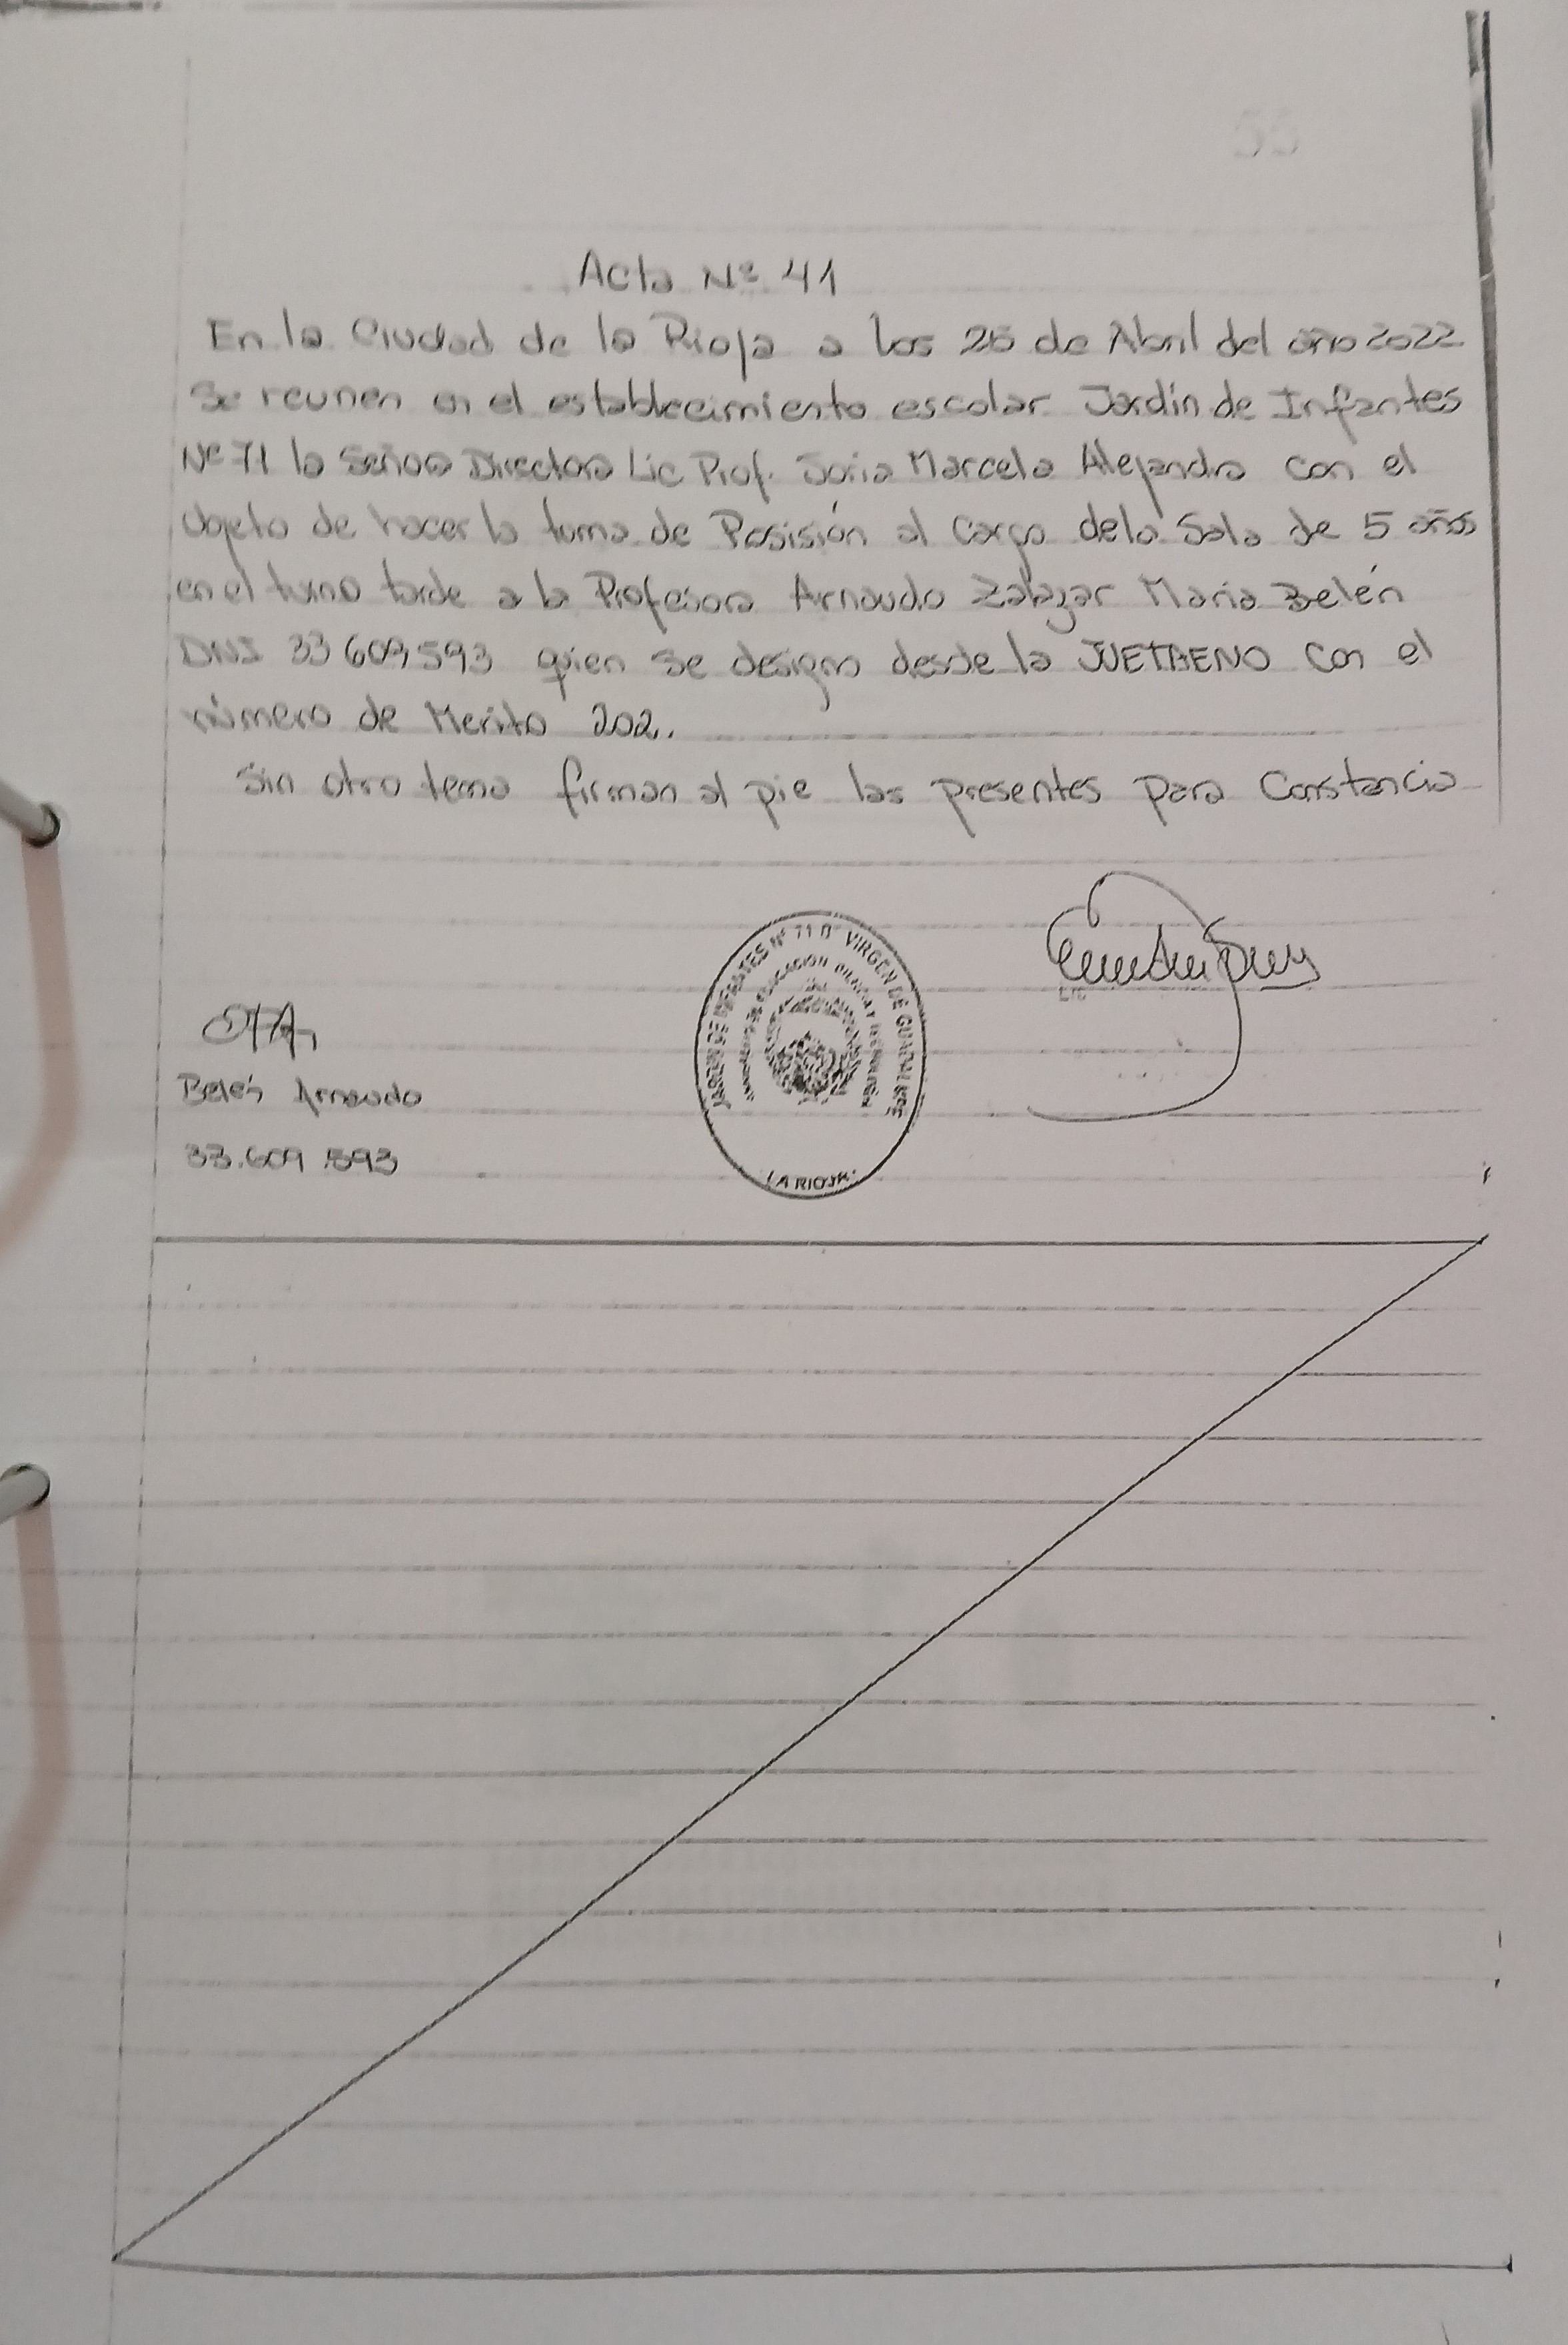 55
Acta Nº 41
En la Ciudad de la Rioja a los 25 de Abril del año 2022
Se reunen en el establecimiento escolar Jardín de Infantes
Nº 71 la Señora Directora Lic Prof. Soria Marcela Alejandra con el
objeto de hacer la toma de Posisión al Cargo de la Sala de 5 años
en el turno tarde a la Profesora Arnaudo Zalazar Maria Belén
DNI 33 609,593 quien se designo desde la JUETAENO con el
número de Merito 202.
Sin otro tema firman al pie las presentes para Constancia
JARDIN DE INFANTES Nº 71 D VIRGEN DE GUADALUPE
LA RIOJA
Belén Arnaudo
33.609.593